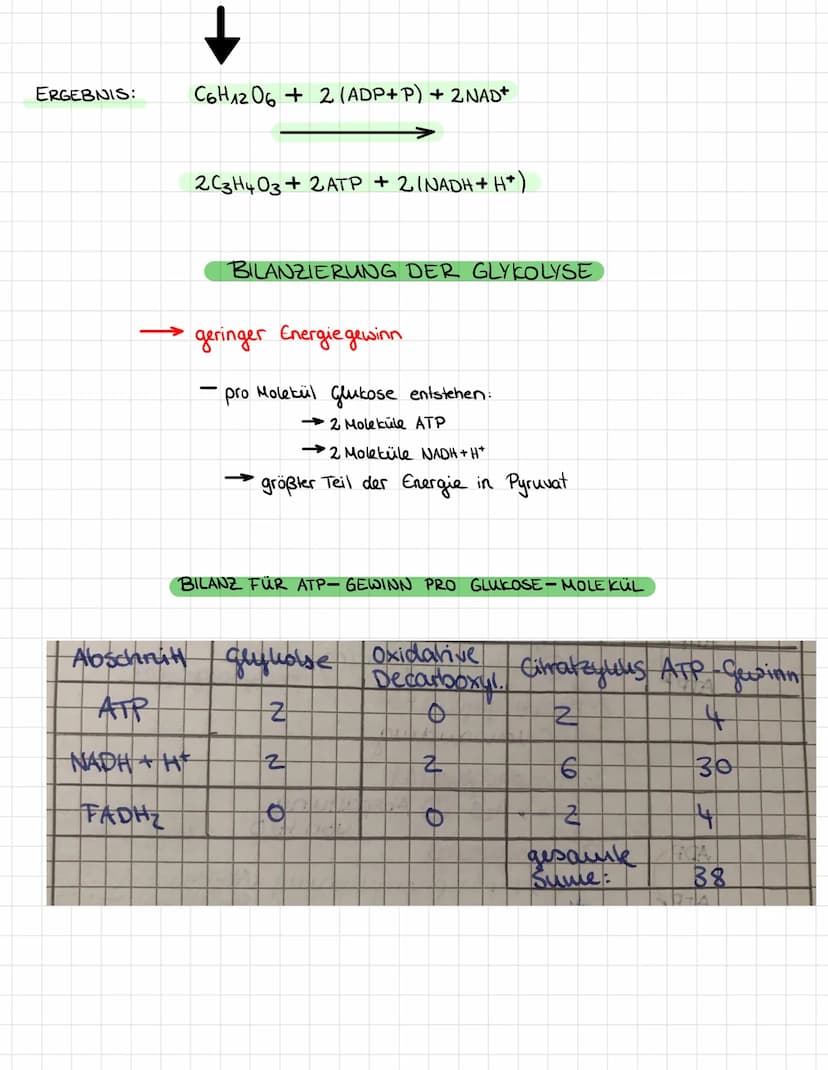 ERGEBNIS: C6H12O6 + 2(ADP+P) + 2NAD+
2C3H4O3 + 2ATP + 2(NADH + H+)
BILANZIERUNG DER GLYKOLYSE
→ geringer Energiegewinn
– pro Molekül Glukose entstehen:
→ 2 Moleküle ATP
→ 2 Moleküle NADH+H+
→ größter Teil der Energie in Pyruvat
BILANZ FÜR ATP-GEWINN PRO GLUKOSE-MOLEKÜL
Abschnitt Glykolse Oxidative Decarboxyl. Citratzyklus ATP-Gewinn
ATP 2 0 2 4
NADH + H+ 2 2 6 30
FADH2 0 0 2 4
gesamte
Sume: 38